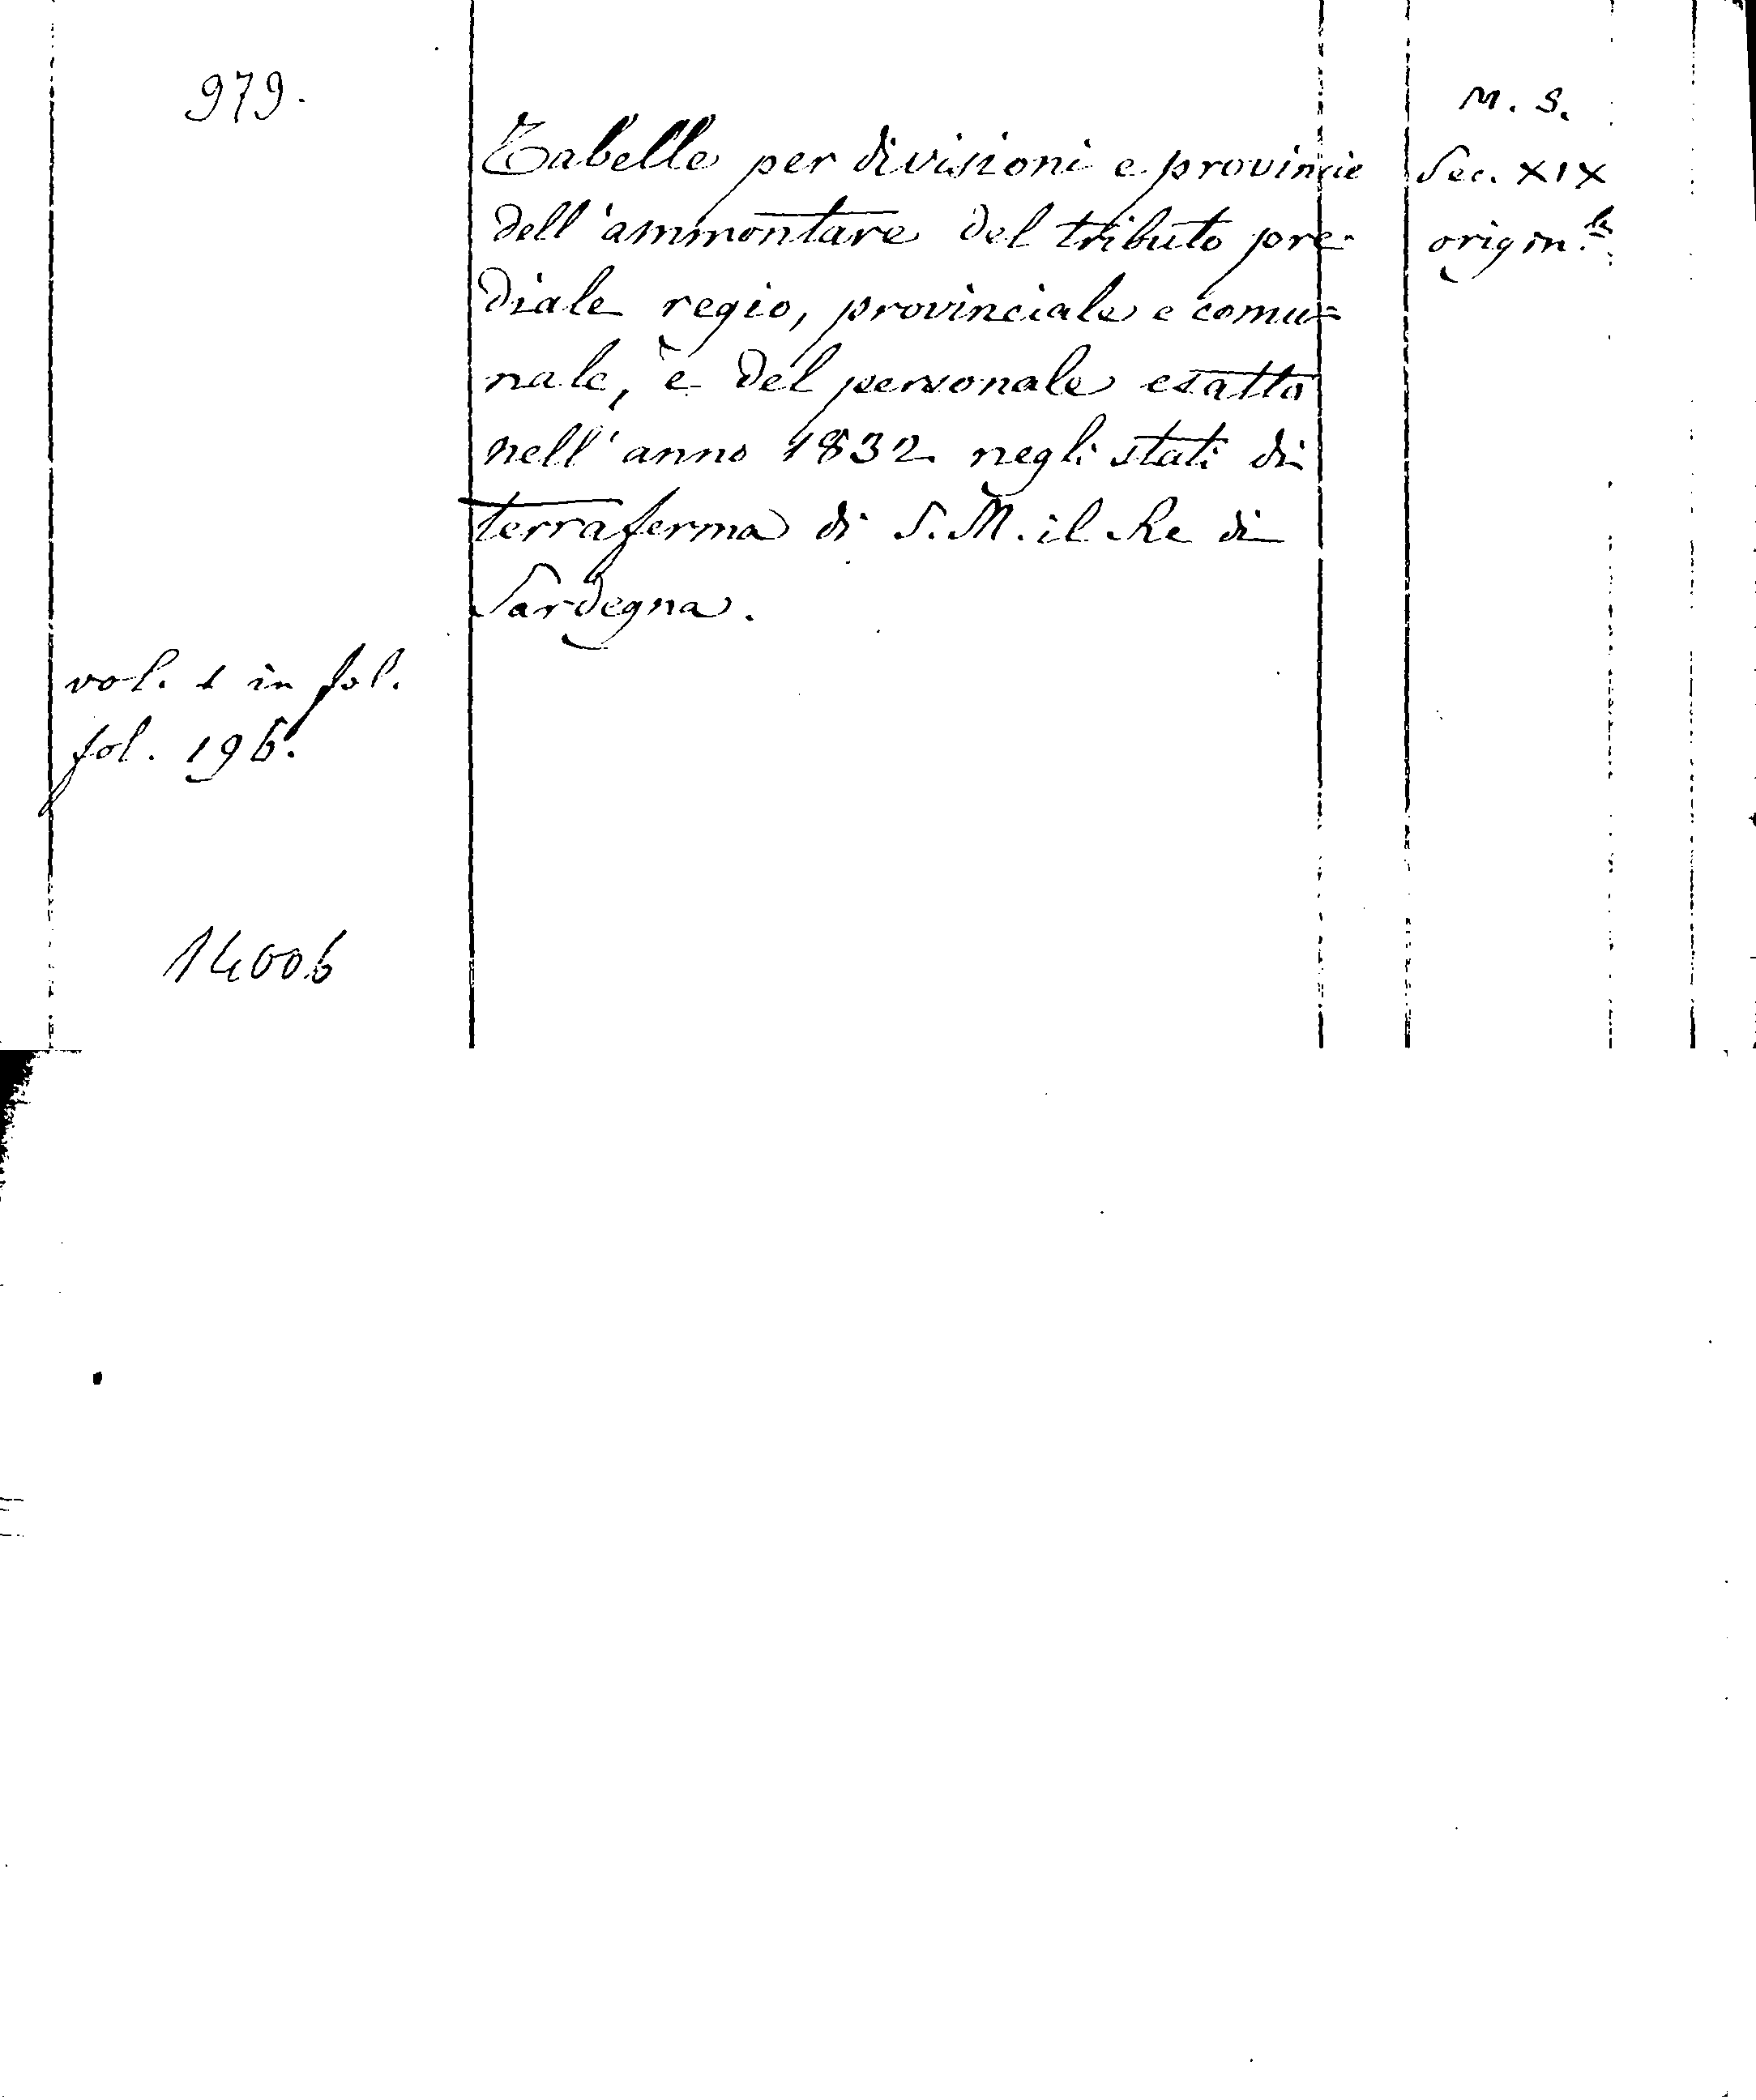 979.
Tabelle per divisioni e provincie
dell'ammontare del tributo pre-
diale regio, provinciale e comu=
nale, e del personale esatto
nell'anno 1832 negli stati di
terraferma di S. M. il Re di
Sardegna.
M. S.
Sec. XIX
origin.le
vol. 1 in fol.
fol. 196.
14006